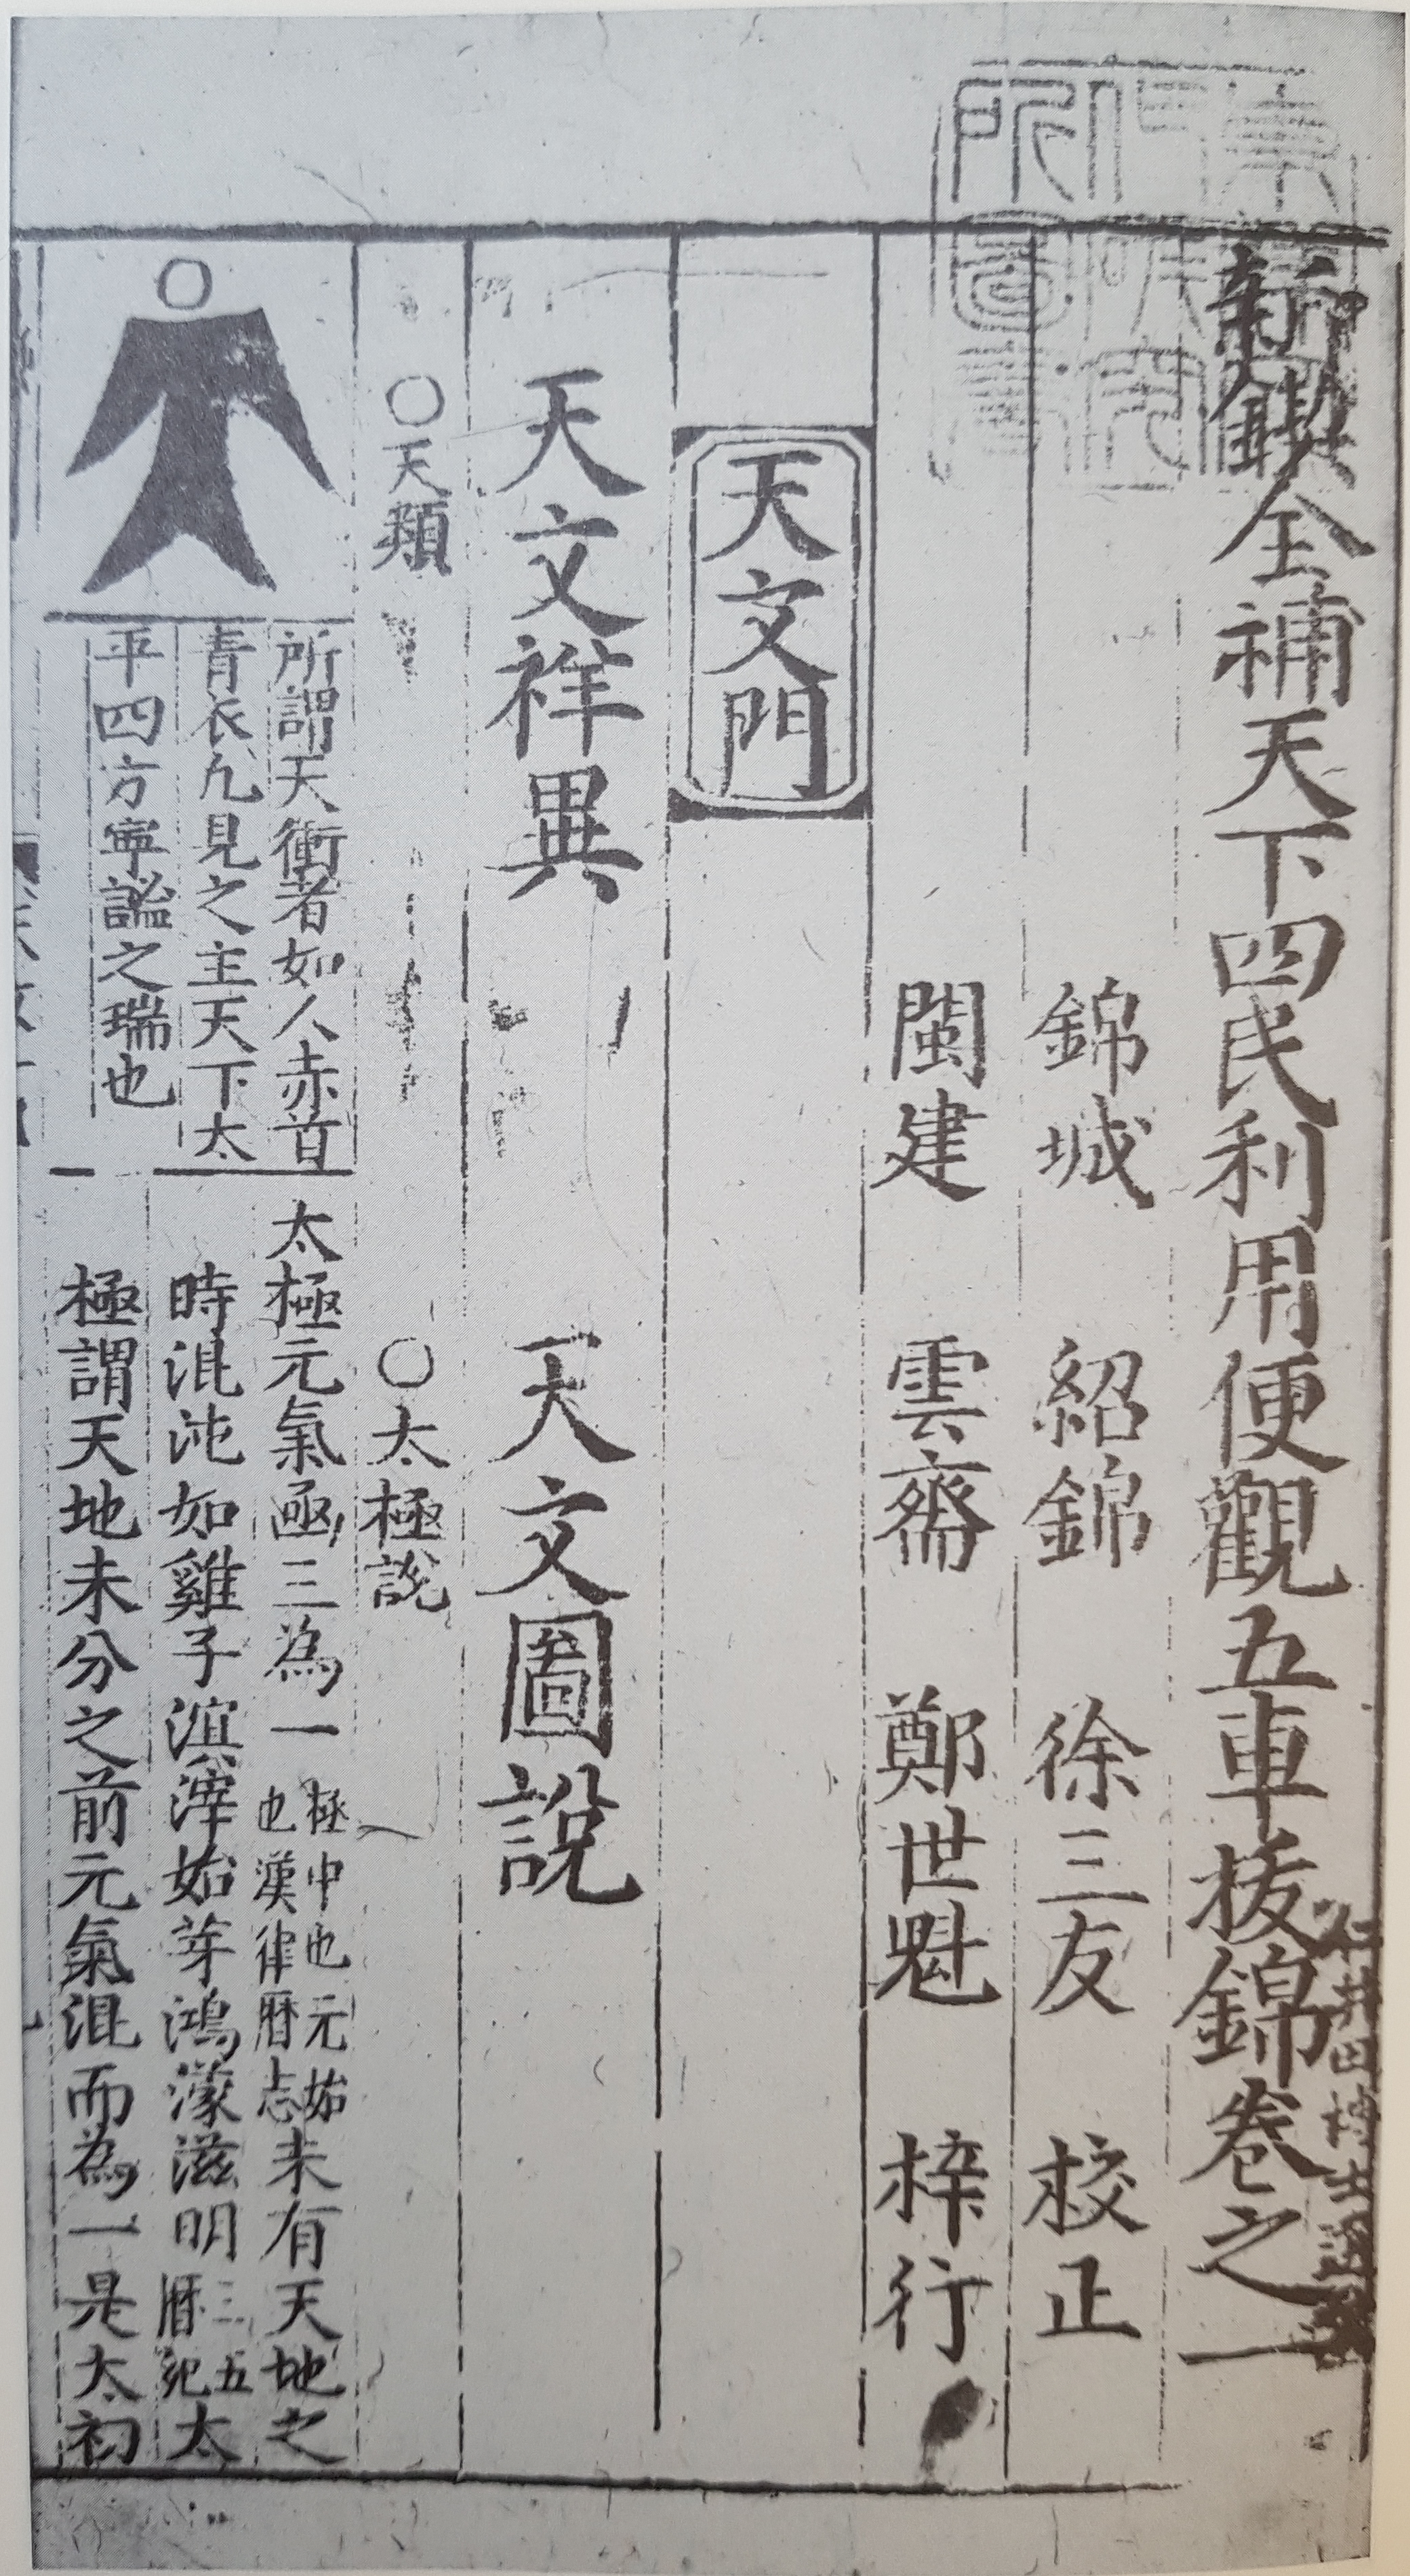 新鍥全補天下四民利用便觀五車拔錦卷之一
錦城 紹錦 徐三友 校正
閩建 雲齋 鄭世魁 梓行
天文門
天文祥異 天文圖說
○天類
所謂天衝者如人赤首
青衣凢見之主天下太
平四方寧謐之瑞也
○太極說
太極元氣凾三為一極中也元始也漢律曆志未有天地之
時混沌如雞子溟涬始芽鴻濛滋明三五曆紀太
極謂天地未分之前元氣混而為一是太初
仁井田博士